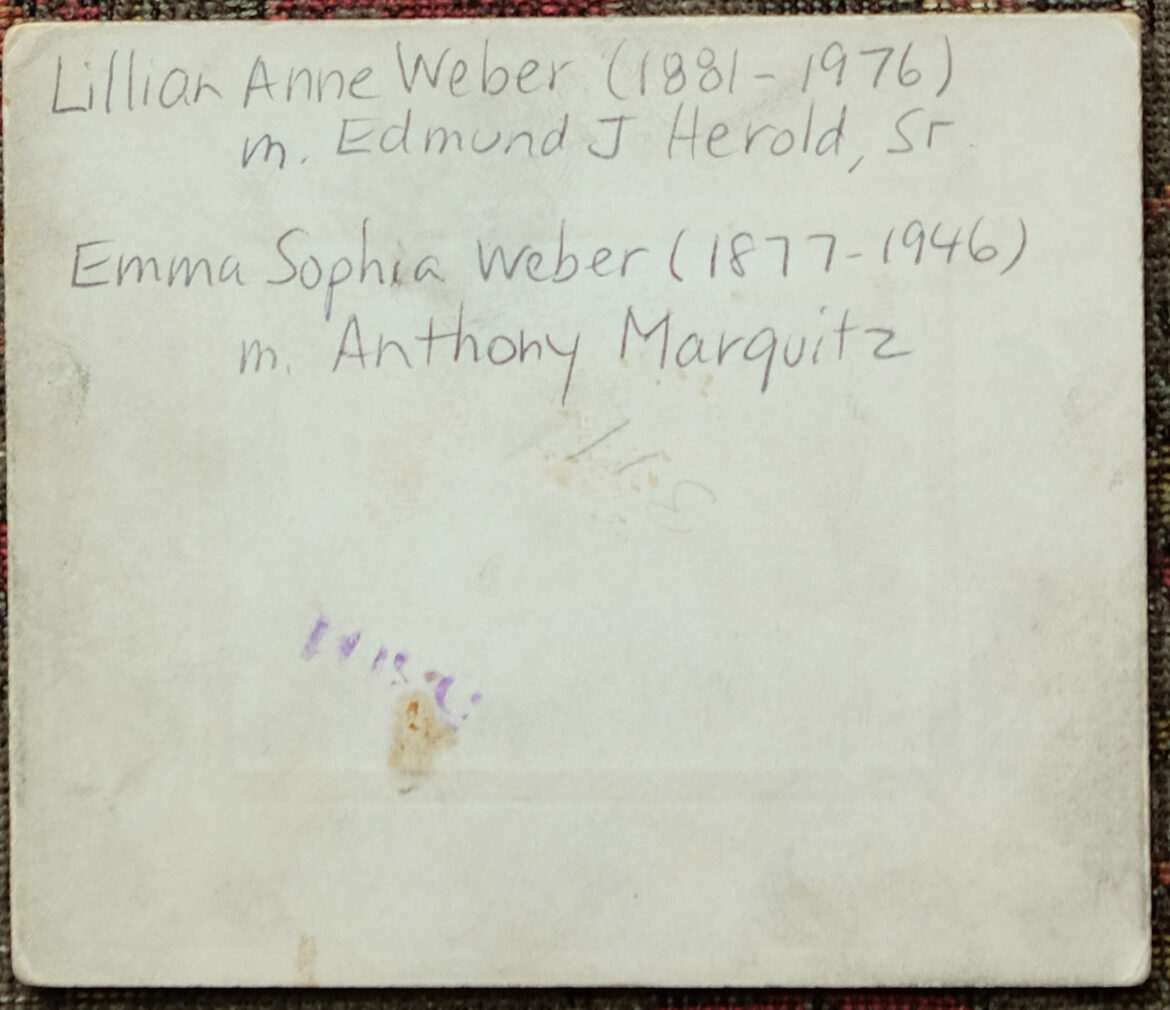 Lillian Anne Weber (1881-1976)
m. Edmund J Herold, Sr.
Emma Sophia Weber (1877-1946)
m. Anthony Marquitz